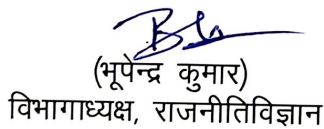 (भूपेन्द्र कुमार)
विभागाध्यक्ष, राजनीतिविज्ञान